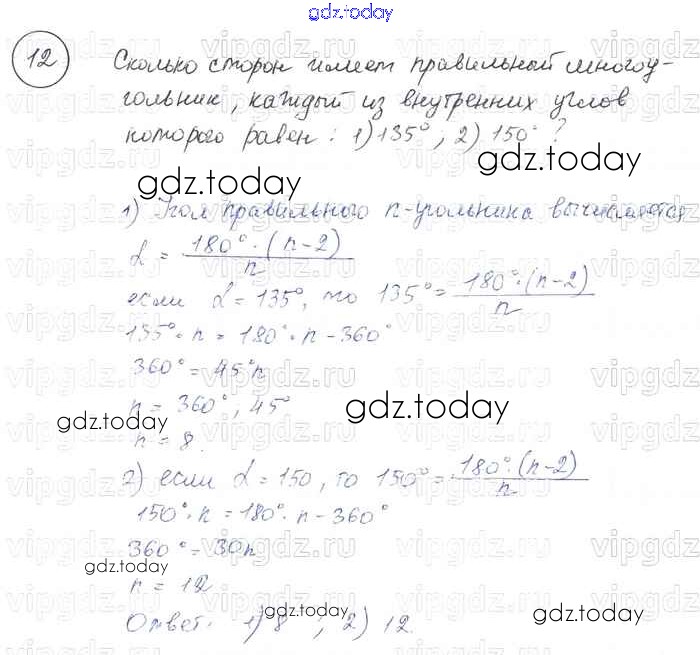 gdz.today
12 Сколько сторон имеет правильный многоу-
гольник, каждый из внутренних углов
которого равен: 1) 135°; 2) 150°?
gdz.today
gdz.today
1) Угол правильного n-угольника вычисляется
α = 180°·(n-2)/n
если α = 135°, то 135° = 180°·(n-2)/n
135°·n = 180°·n - 360°
360° = 45°n
n = 360°, 45°
gdz.today
gdz.today
n = 8.
2) если α = 150, то 150° = 180°·(n-2)/n
150°·n = 180°·n - 360°
360° = 30n
gdz.today
n = 12
gdz.today
gdz.today
Ответ: 1) 8; 2) 12.